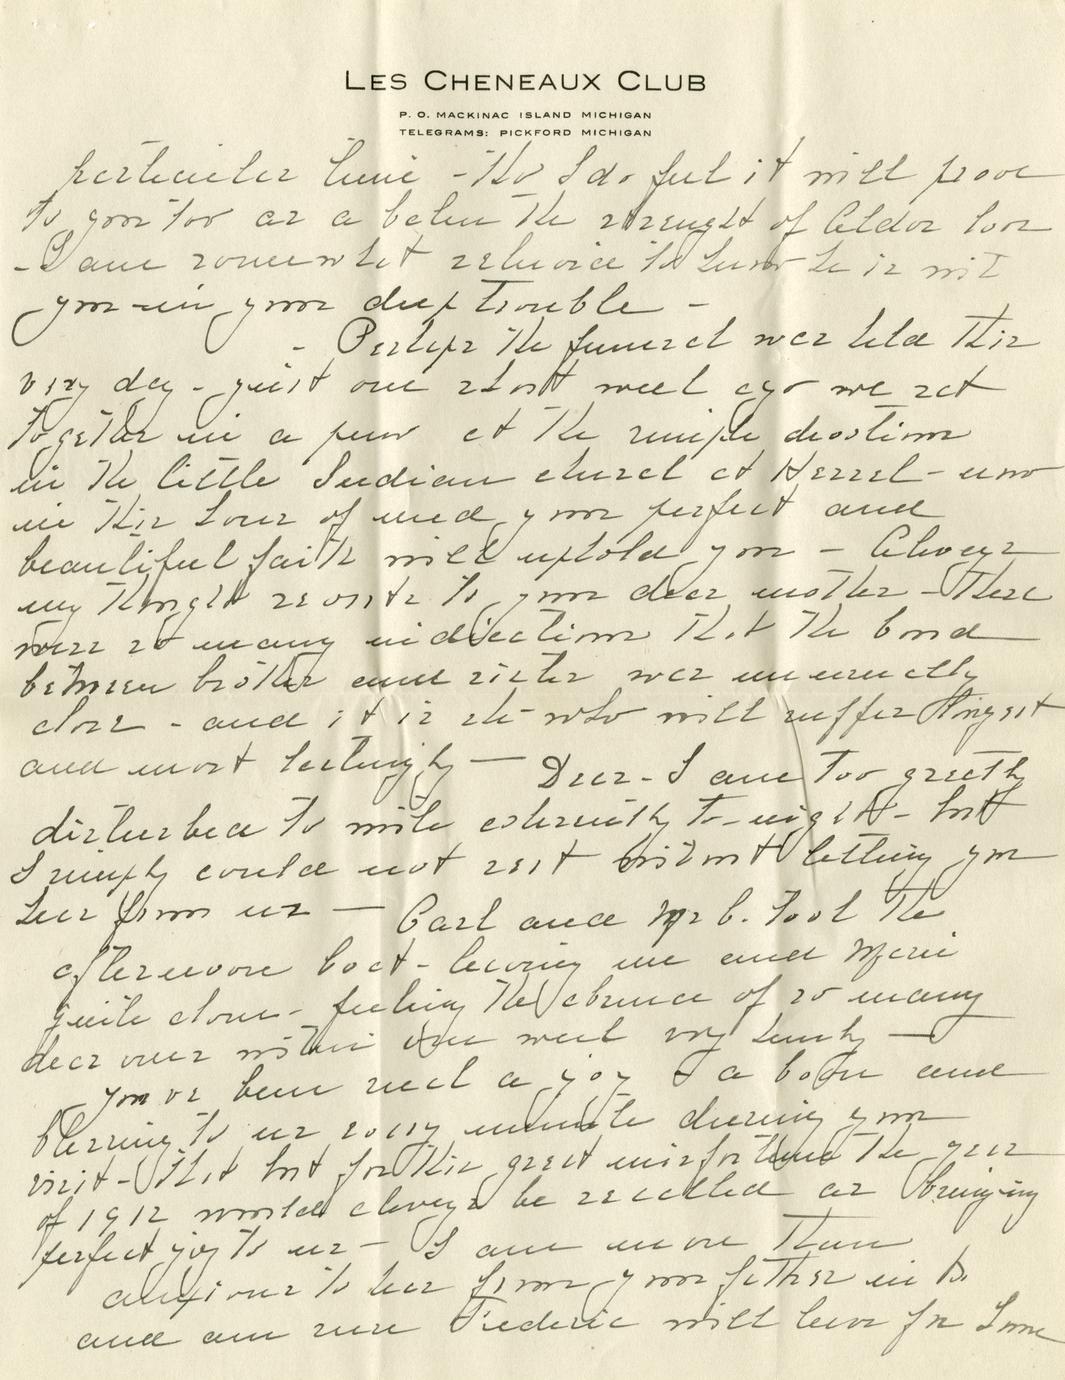 LES CHENEAUX CLUB
P. O. MACKINAC ISLAND MICHIGAN
TELEGRAMS: PICKFORD MICHIGAN
particular time - tho I do feel it will prove
to you too as a balm the strenght of Aldas love
- I am somewhat relieved to know he is with
you in your deep trouble -
- Perhaps the funeral was held this
very day - just one short week ago we sat
together in a pew at the simple devotions
in the little Indian church at Hessel - now
in this hour of need your perfect and
beautiful faith will uphold you - Always
my thought reverts to your dear mother - there
were so many indications that the bond
between brother and sister was unusually
close - and it is she who will suffer longest
and most lastingly — Dear - I am too greatly
disturbed to write coherently to-night - but
I simply could not rest without letting you
hear from us — Carl and Mr C. took the
afternoon boat - leaving me and Marie
quite alone - feeling the absence of so many
dear ones within one week very keenly —
You've been such a joy & a boon and
blessing to us every minute during your
visit - that but for this great misfortune the year
of 1912 would always be recalled as bringing
perfect joy to us - I am more than
anxious to hear from your father in
and am sure Frederic will leave for home